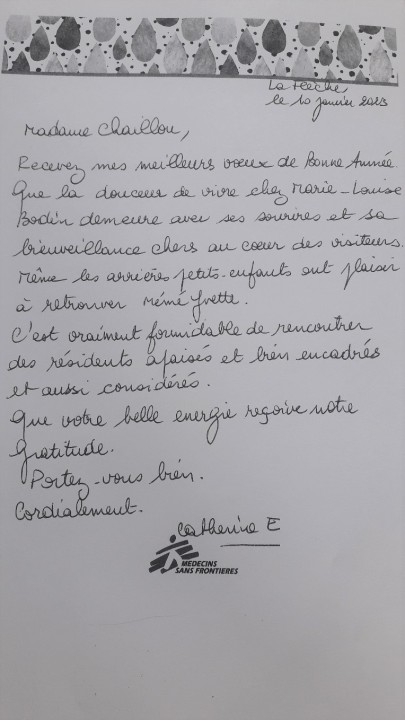 La Flèche,
le 10 janvier 2023
Madame Chaillou,
Recevez mes meilleurs vœux de Bonne Année
Que la douceur de vivre chez Marie-Louise
Bodin demeure avec ses sourires et sa
bienveillance chers au cœur des visiteurs.
Même les arrières petits-enfants ont plaisir
à retrouver Mémé Yvette.
C'est vraiment formidable de rencontrer
des résidents apaisés et bien encadrés
et aussi considérés.
Que votre belle energie reçoive notre
gratitude.
Portez-vous bien.
Cordialement.
Catherine E
MEDECINS
SANS FRONTIERES